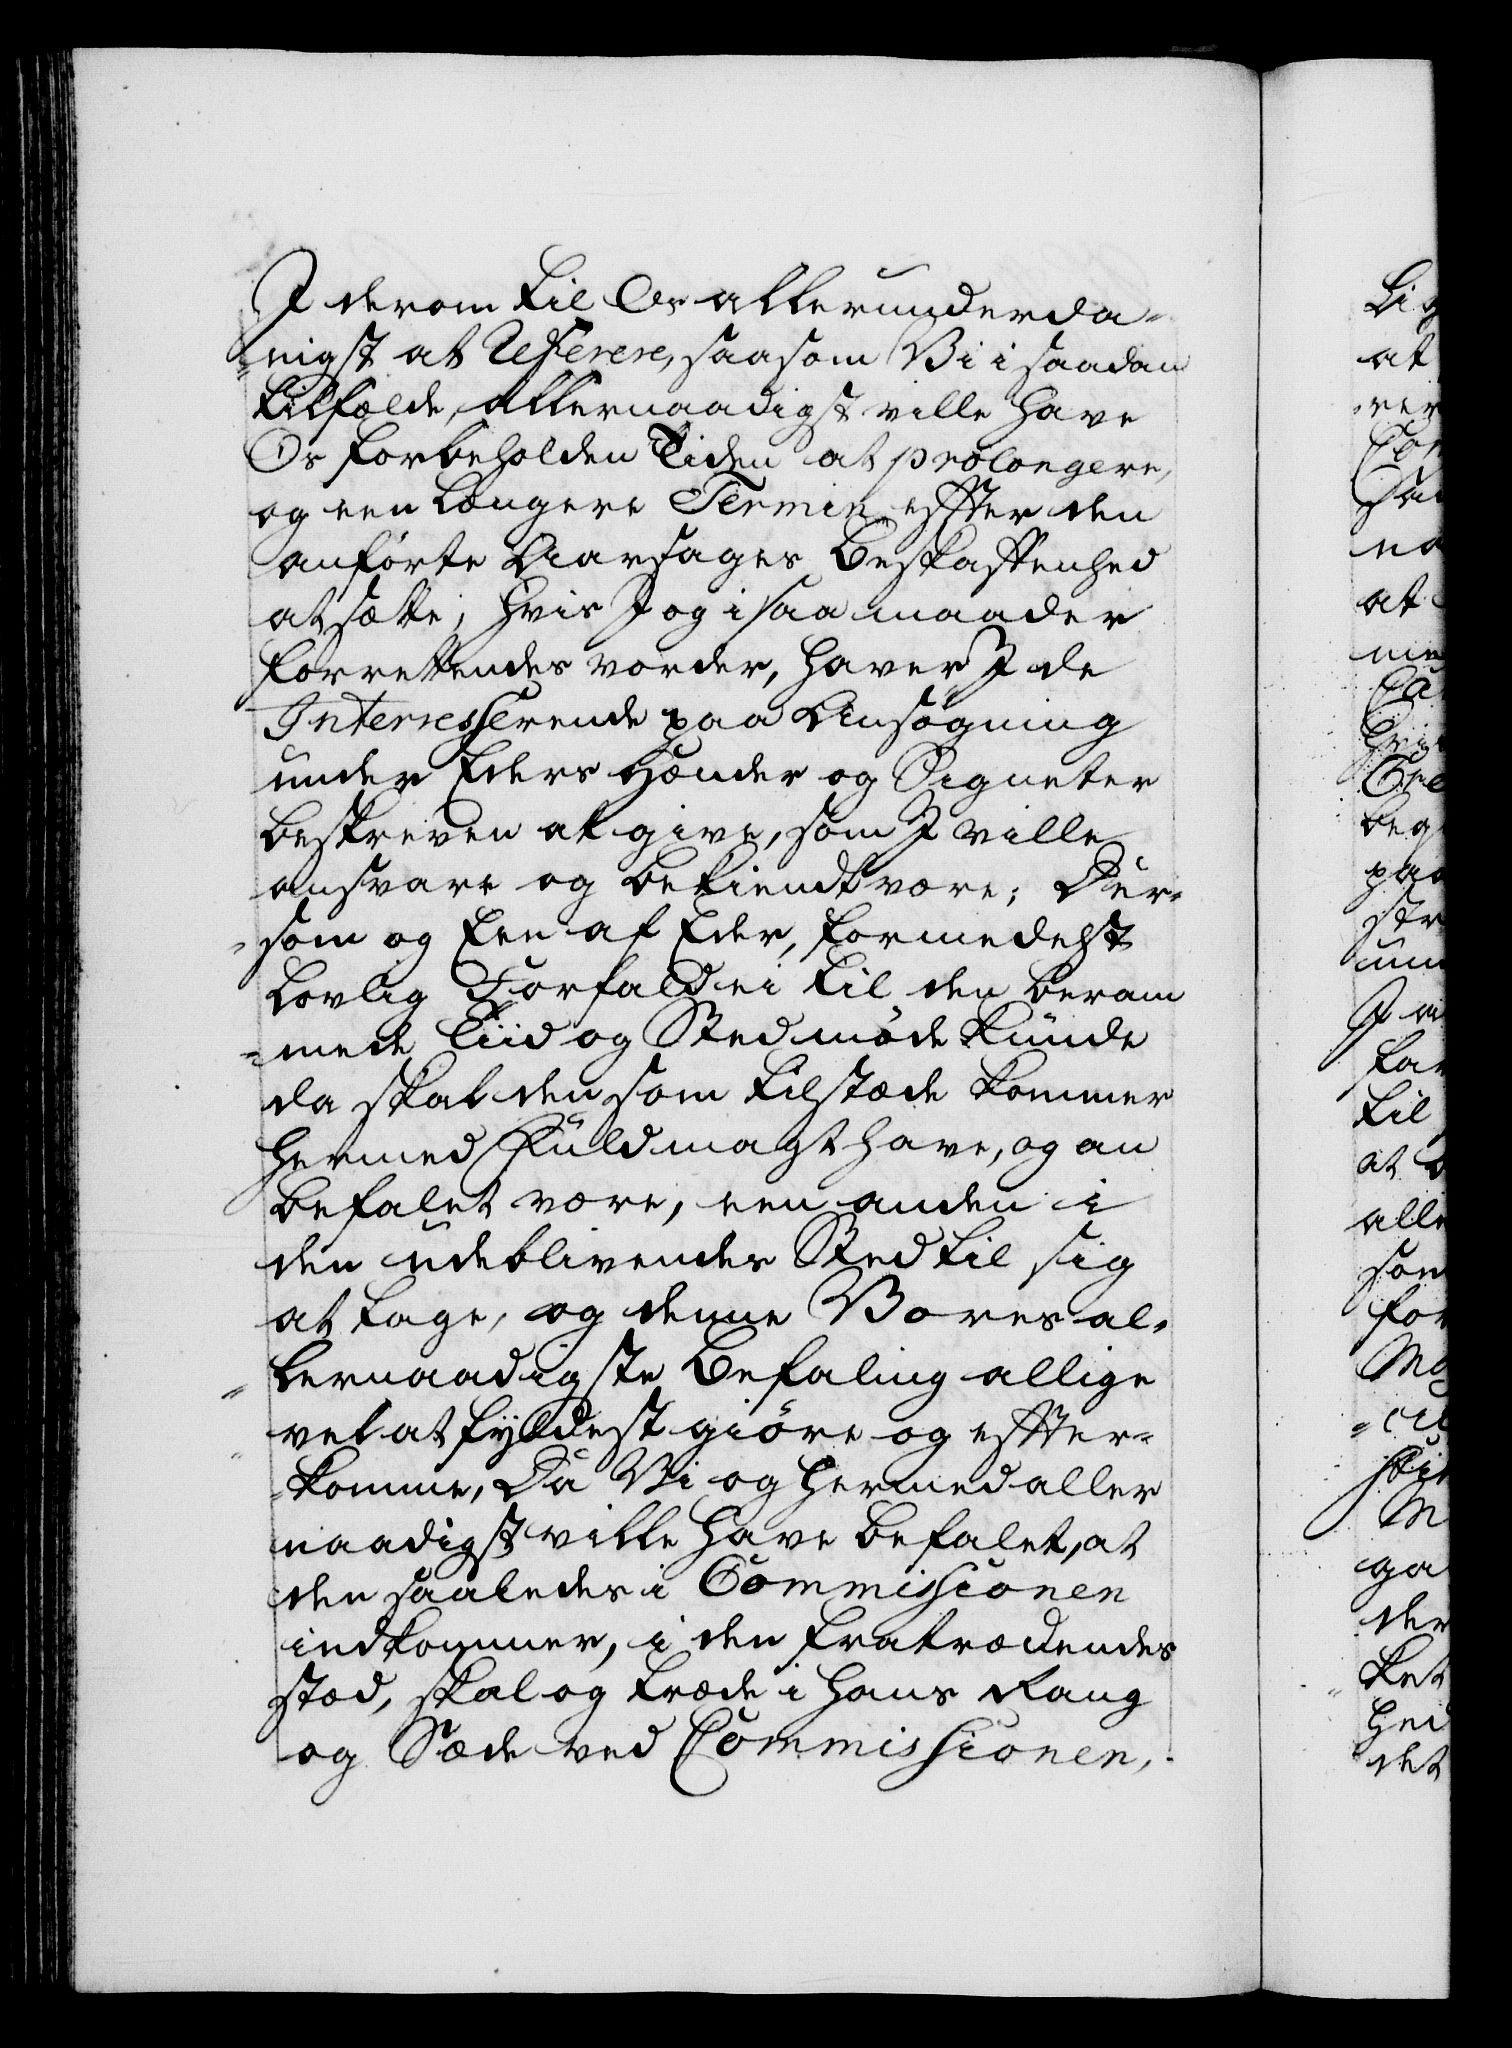 I derom til Os allerunderda-
nigst at Referere, saasom Vi i saadan
tilfælde, allernaadigst ville have
Os forbeholden Tiden at prolongere,
og een længere Termin effter den
anførte Aarsages Beskaffenhed
at sætte; hvis I og i saa maader
forrettendes vorder, haver I de
Interresserende paa Ansøgning
under Eders Hænder og Signeter
beskreven at give, som I ville
ansvare og bekiendt være; Der-
som og Een af Eder, formedelst
lovlig Forfald ei til den beram
mede Tiid og Sted møde kunde
da skal den som tilstæde kommer
hermed Fuldmagt have, og an
befalet være, een anden i
den udeblivendes Sted til sig
at tage, og denne Vores al-
lernaadigste Befaling allige
vel at fyldestgiøre og effter-
komme, Da Vi og hermed aller
naadigst ville have befalet, at
den saaledes i Commissionen
indkommer, i den fratrædendes
stæd, skal og træde i hans Rang
og Sæde ved Commissionen,
Lig
at
rer
Con
na
at
me
beg
paa
str
I a
til
at b
alle
som
for
ga
der
ket
hed
det